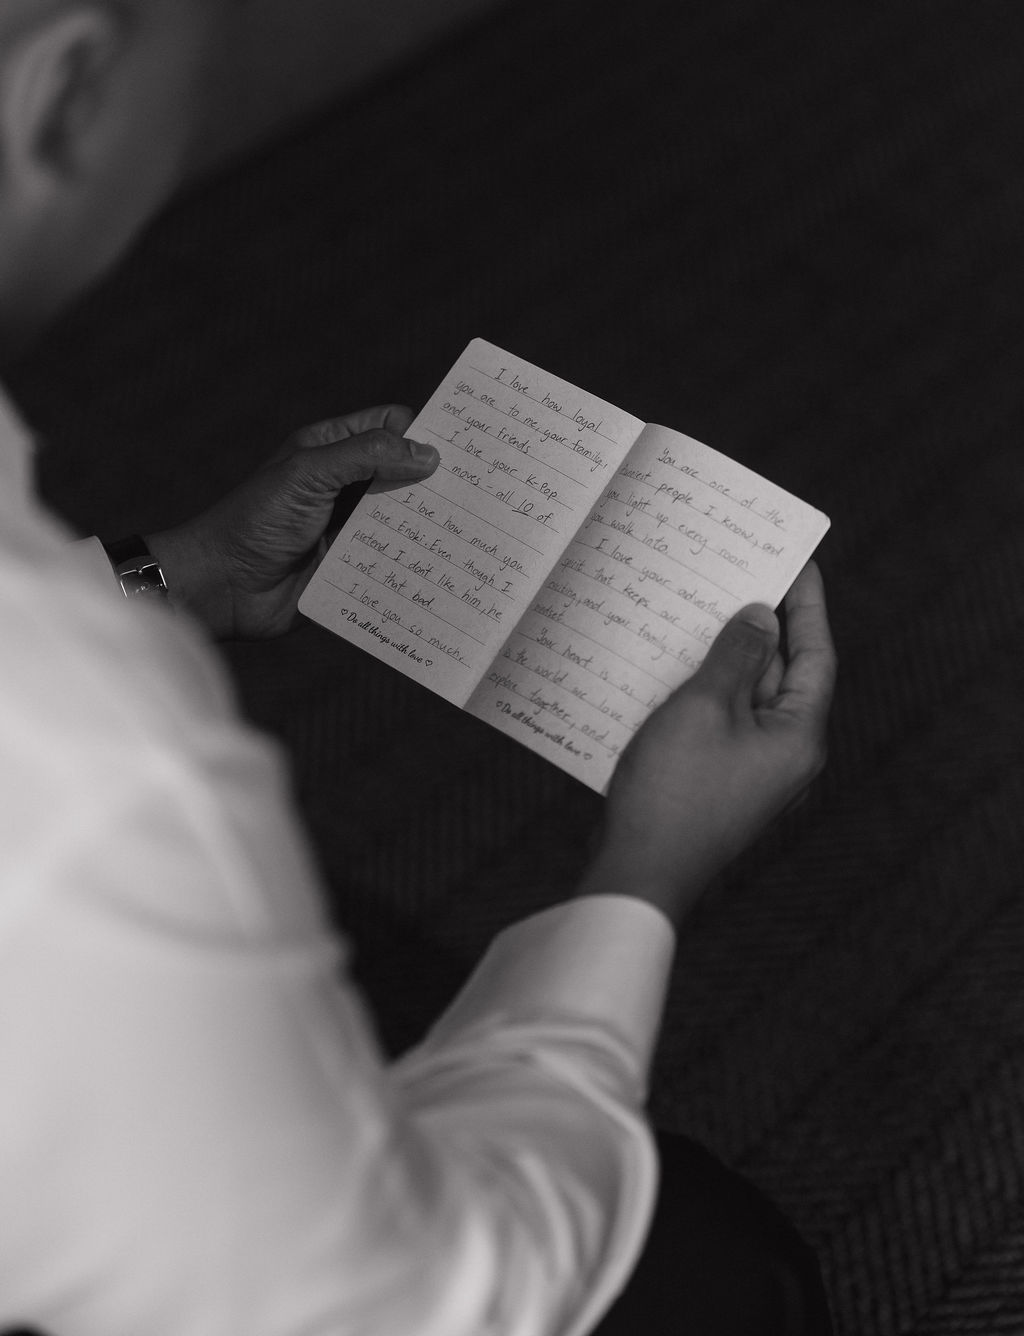 I love how loyal
you are to me, your family,
and your friends
I love your K-Pop
moves - all 10 of
I love how much you
love Enoki. Even though I
pretend I don't like him, he
is not that bad.
I love you so much.
♡ Do all things with love ♡
You are one of the
funniest people I know, and
you light up every room
you walk into.
I love your
spirit that keeps our life
and your family-first
mindset.
Your heart is as
as the world we love
explore together, and
♡ Do all things with love ♡